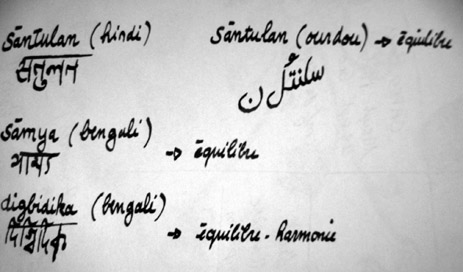 Sāntulan (hindi)
Sāntulan (ourdou) → équilibre
सतुलत
سانتُلن
sāmya (bengali)
→ équilibre
digbidika (bengali)
→ équilibre - harmonie